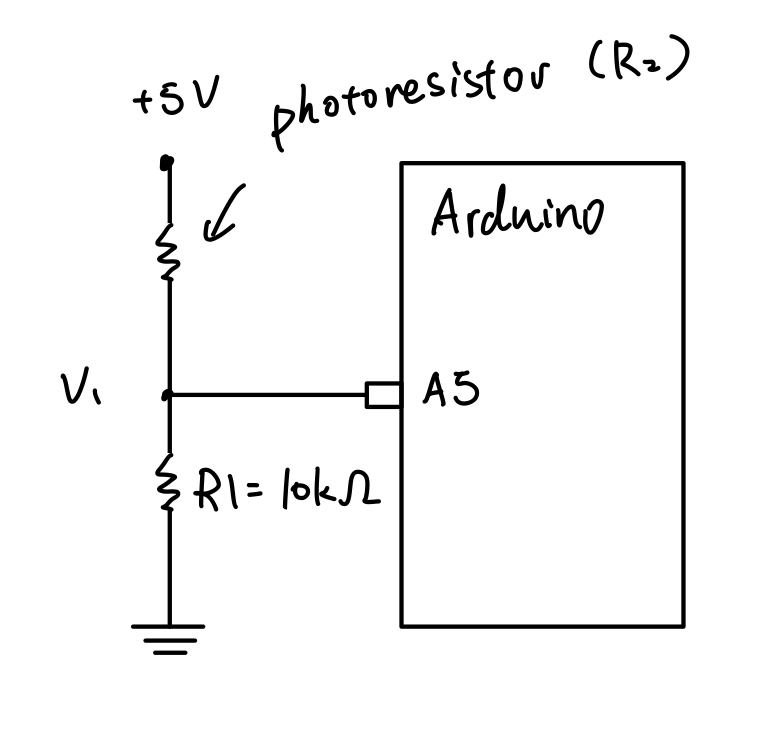 photoresistor (R₂)
+5V
Arduino
V₁
A5
R1=10kΩ